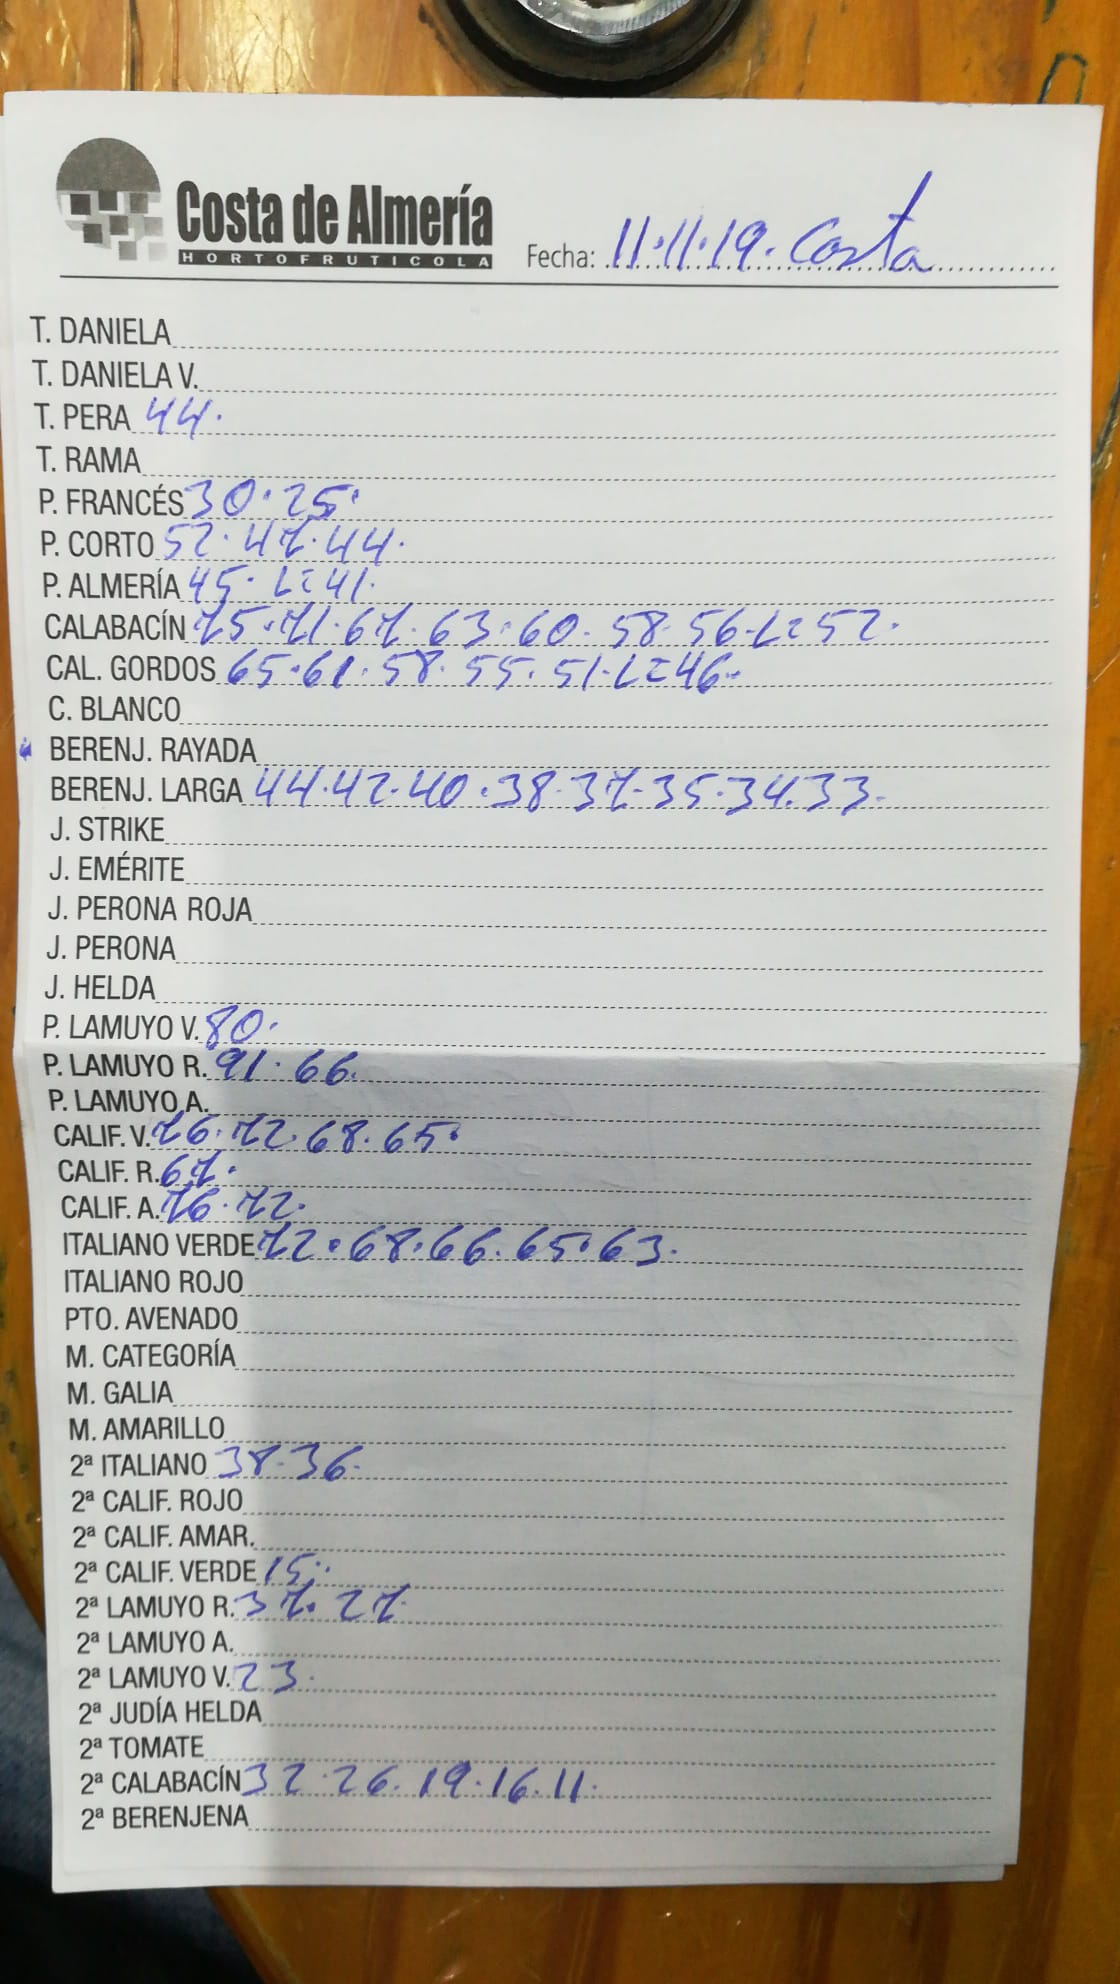 Costa de Almería
HORTOFRUTICOLA
Fecha: 11.11.19. Costa
T. DANIELA
T. DANIELA V.
T. PERA 44.
T. RAMA
P. FRANCÉS 30.25.
P. CORTO 52.47.44.
P. ALMERÍA 45. L=41.
CALABACÍN 75.71.67.63.60.58.56.L=52.
CAL. GORDOS 65.61.58.55.51.L=46.
C. BLANCO
BERENJ. RAYADA
BERENJ. LARGA 44.42.40.38.37.35.34.33.
J. STRIKE
J. EMÉRITE
J. PERONA ROJA
J. PERONA
J. HELDA
P. LAMUYO V. 80.
P. LAMUYO R. 91.66.
P. LAMUYO A.
CALIF. V. 76.72.68.65.
CALIF. R. 67.
CALIF. A. 76.72.
ITALIANO VERDE 72.68.66.65.63.
ITALIANO ROJO
PTO. AVENADO
M. CATEGORÍA
M. GALIA
M. AMARILLO
2ª ITALIANO 38.36.
2ª CALIF. ROJO
2ª CALIF. AMAR.
2ª CALIF. VERDE 15.
2ª LAMUYO R. 37.27
2ª LAMUYO A.
2ª LAMUYO V. 23.
2ª JUDÍA HELDA
2ª TOMATE
2ª CALABACÍN 32.26.19.16.11.
2ª BERENJENA